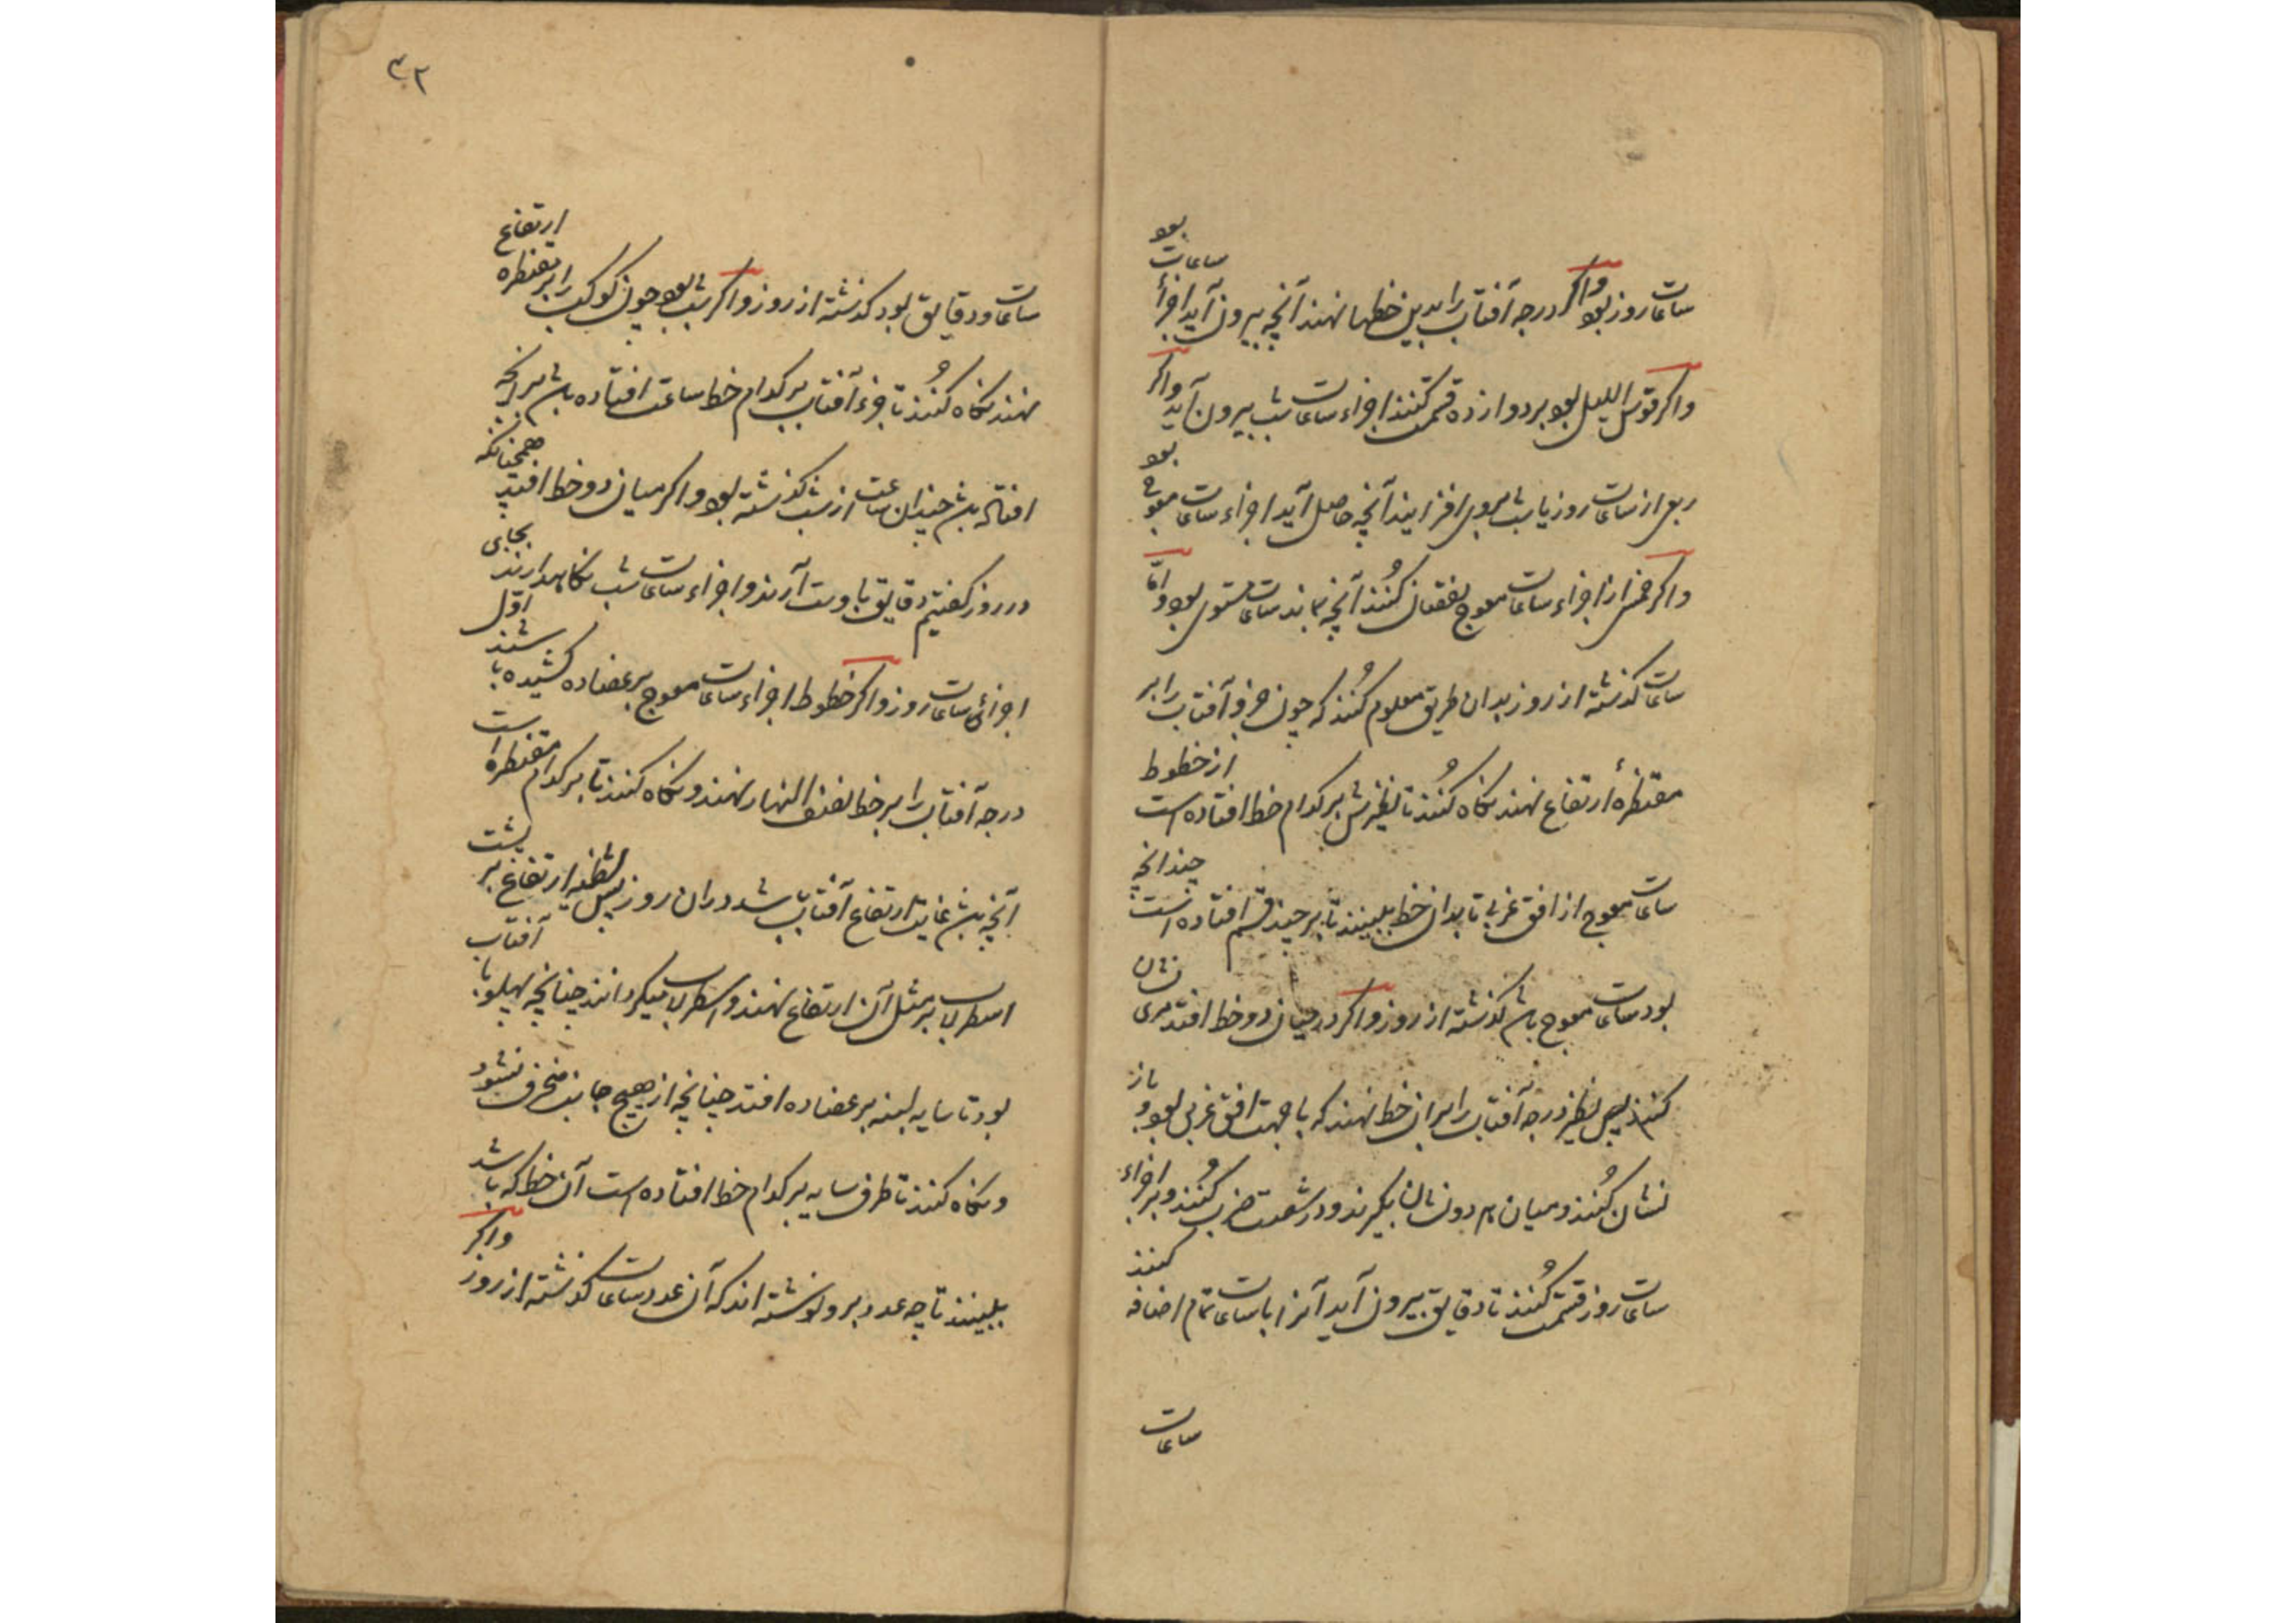 ساعات روز بود واکر درجه آفتاب را بدین خطها نهند آنچه بیرون آید اجزأ ساعات بود
واکر قوس اللیل بود بر دوازده قسمت کنند اجزاء ساعات شب بیرون آید واکر
ربعی از ساعات روز یا شب بروی افزایند آنچه حاصل آید اجزاء ساعات معوج بود
واکر خمس از اجزاء ساعات معوج نقصان کُنند آنچه بماند ساعات مستوی بود وامّا
ساعات کذشته از روز بدان طریق معلوم کُنند که چون جزو آفتاب را بر
مقنطرهٔ ارتفاع نهند نکاه کُنند تا نظیرش بر کدام خط افتاده است از خطوط
ساعات معوج از افق غربی تا بدان خط ببینند تا بر چند قسم افتاده است چندانچه
بود ساعات معوج باشد کذشته از روز واکر در میان دو خط افتد مری نشان
کنند پس نظیر درجه آفتاب را بران خط نهند که با جهت افق غربی بود و باز
نشان کُنند و میان هر دو نشان بکیرند و در شصت ضرب کُنند و بر اجزاء
ساعات روز قسمت کُنند تا دقایق بیرون آید آنرا با ساعات تمام اضافه کنند
ساعات
۴۲
ساعات و دقایق بود کذشته از روز واکر شب بود چون کوکب را بر مقنطره ارتفاع
نهند نکاه کُنند تا جزء آفتاب بر کدام خط ساعت افتاده باشد بر آنچه
افتاده باشد چندان ساعت از شب کذشته بود واکر میان دو خط افتد همچنانکه
در روز کفتیم دقایق با دست آرند و اجزاء ساعات شب نکاهدارند بجای
اجزای ساعات روز واکر خطوط اجزاء ساعات معوج بر عضاده کشیده باشند اوّل
درجه آفتاب را بر خط نصف النهار نهند و نکاه کنند تا بر کدام مقنطره است
آنچه باشد غایت ارتفاع آفتاب باشد دران روز پس شظیه ارتفاع بر پشت
اسطرلاب بر مثل آن ارتفاع نهند و اسطرلاب میکردانند چنانچه پهلو با آفتاب
بود تا سایه لبنه بر عضاده افتد چنانچه از هیچ جانب منحرف نشود
و نکاه کنند تا طرف سایه بر کدام خط افتاده است آن خط که باشد
ببینند تا چه عدد برو نوشته اند که آن عدد ساعات کذشته از روز واکر